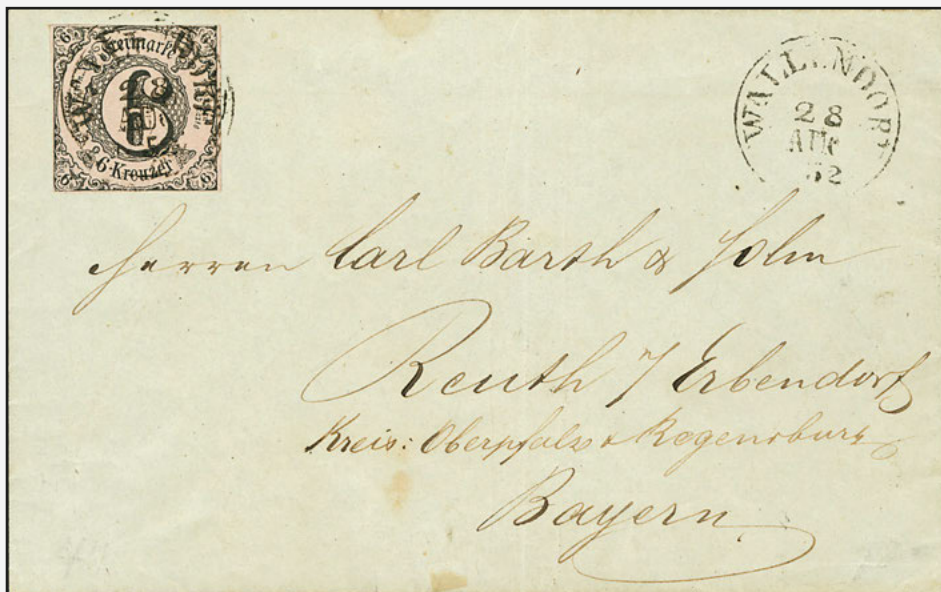 Freimarke
6
6 Kreuzer
WALLENDORF
28
AUG
52
Herren Carl Barth & Sohn
Reuth / Erbendorf
Kreis: Oberpfalz & Regensburg
Bayern